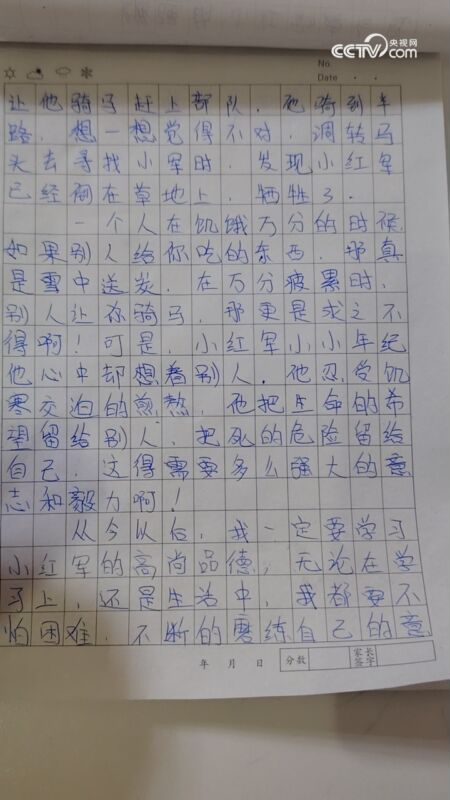 CCTV 央视网
com
No.
Date
让他骑马赶上部队。他骑到半
路，想一想觉得不对，调转马
头去寻找小军时，发现小红军
已经倒在草地上，牺牲了。
一个人在饥饿万分的时候，
如果别人给你吃的东西，那真
是雪中送炭。在万分疲累时，
别人让你骑马，那更是求之不
得啊！可是，小红军小小年纪
他心中却想着别人。他忍受饥
寒交迫的煎熬，他把生命的希
望留给别人，把死的危险留给
自己，这得需要多么强大的意
志和毅力啊！
从今以后，我一定要学习
小红军的高尚品德，无论在学
习上，还是生活中，我都要不
怕困难，不断的磨练自己的意
年 月 日 分数 家长签字